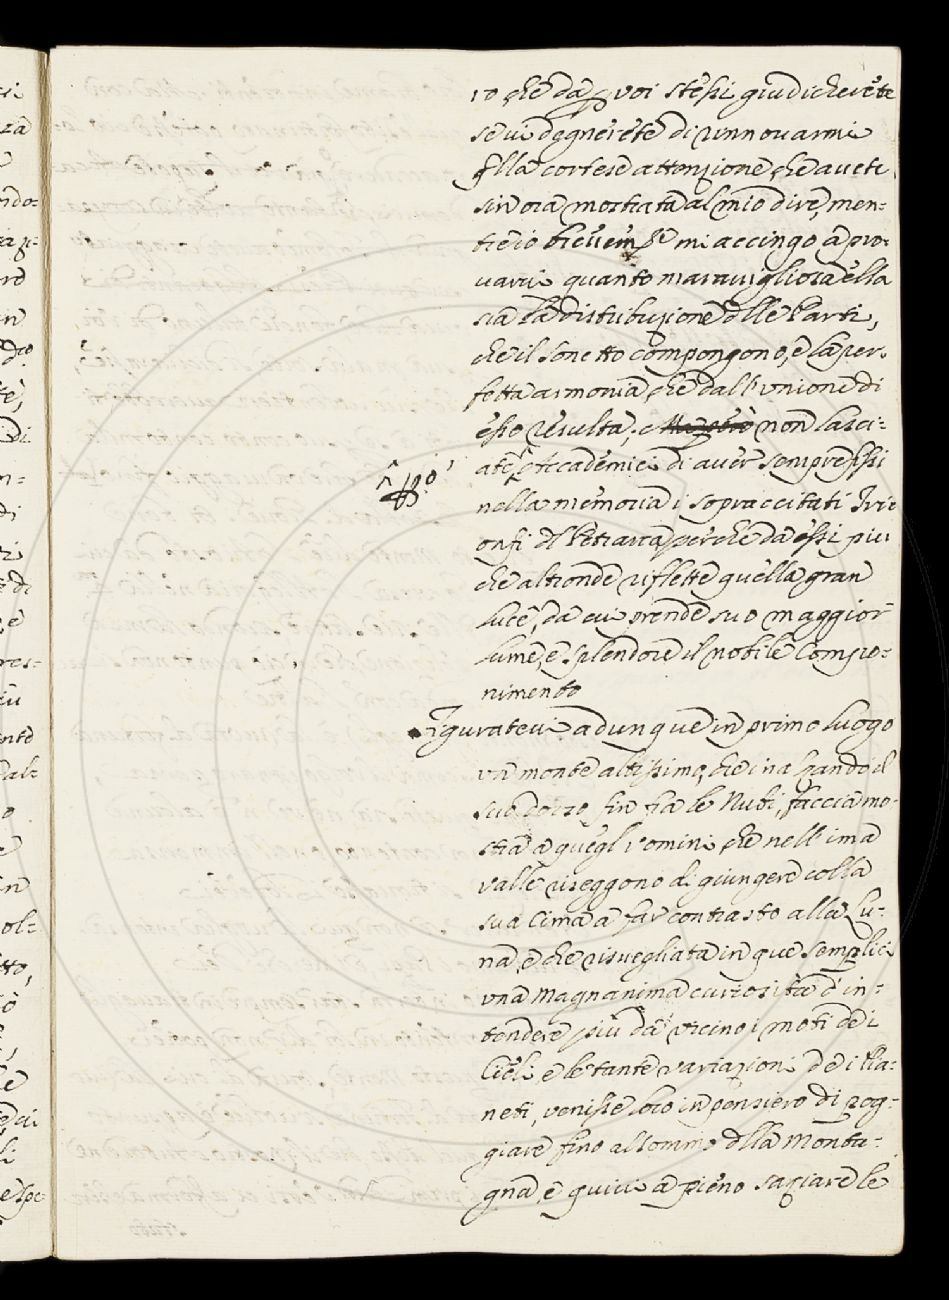 ro che da voi stessi giudicherete
se vi degnerete di rinnovarmi
qlla cortese attenzione, che avete
sin ora mostrata al mio dire, men=
tre io brievemte mi accingo a pro=
varvi quanto maravigliosa ella
sia la distribuzione dlle Parti,
che il Sonetto compongono, e la per=
fetta armonia, che dall'unione di
esso resulta; e non lasci=
ate o Accademici di aver sempre fissi
nella memoria i sopraccitati Tri=
onfi dl Petrarca perche da essi piu
che altronde riflette quella gran
luce, da cui prende suo maggior
lume, e splendore il nobile Compo=
nimento
Figuratevi adunque in primo luogo
un monte altissimo, che inalzando il
suo dorso fin fra le Nubi, faccia mo=
stra a quegl'uomini, che nell'ima
valle riseggono di giungere colla
sua Cima a far contrasto alla Lu=
na, e che risvegliata in que semplici
una Magnanima curiosità d'in=
tendere più da vicino i moti dei
Cieli, e le tante variazioni dei Pia=
neti, venisse loro in pensiero di pog=
giare fino al sommo dlla Monta=
gna, e quivi a pieno saziare le